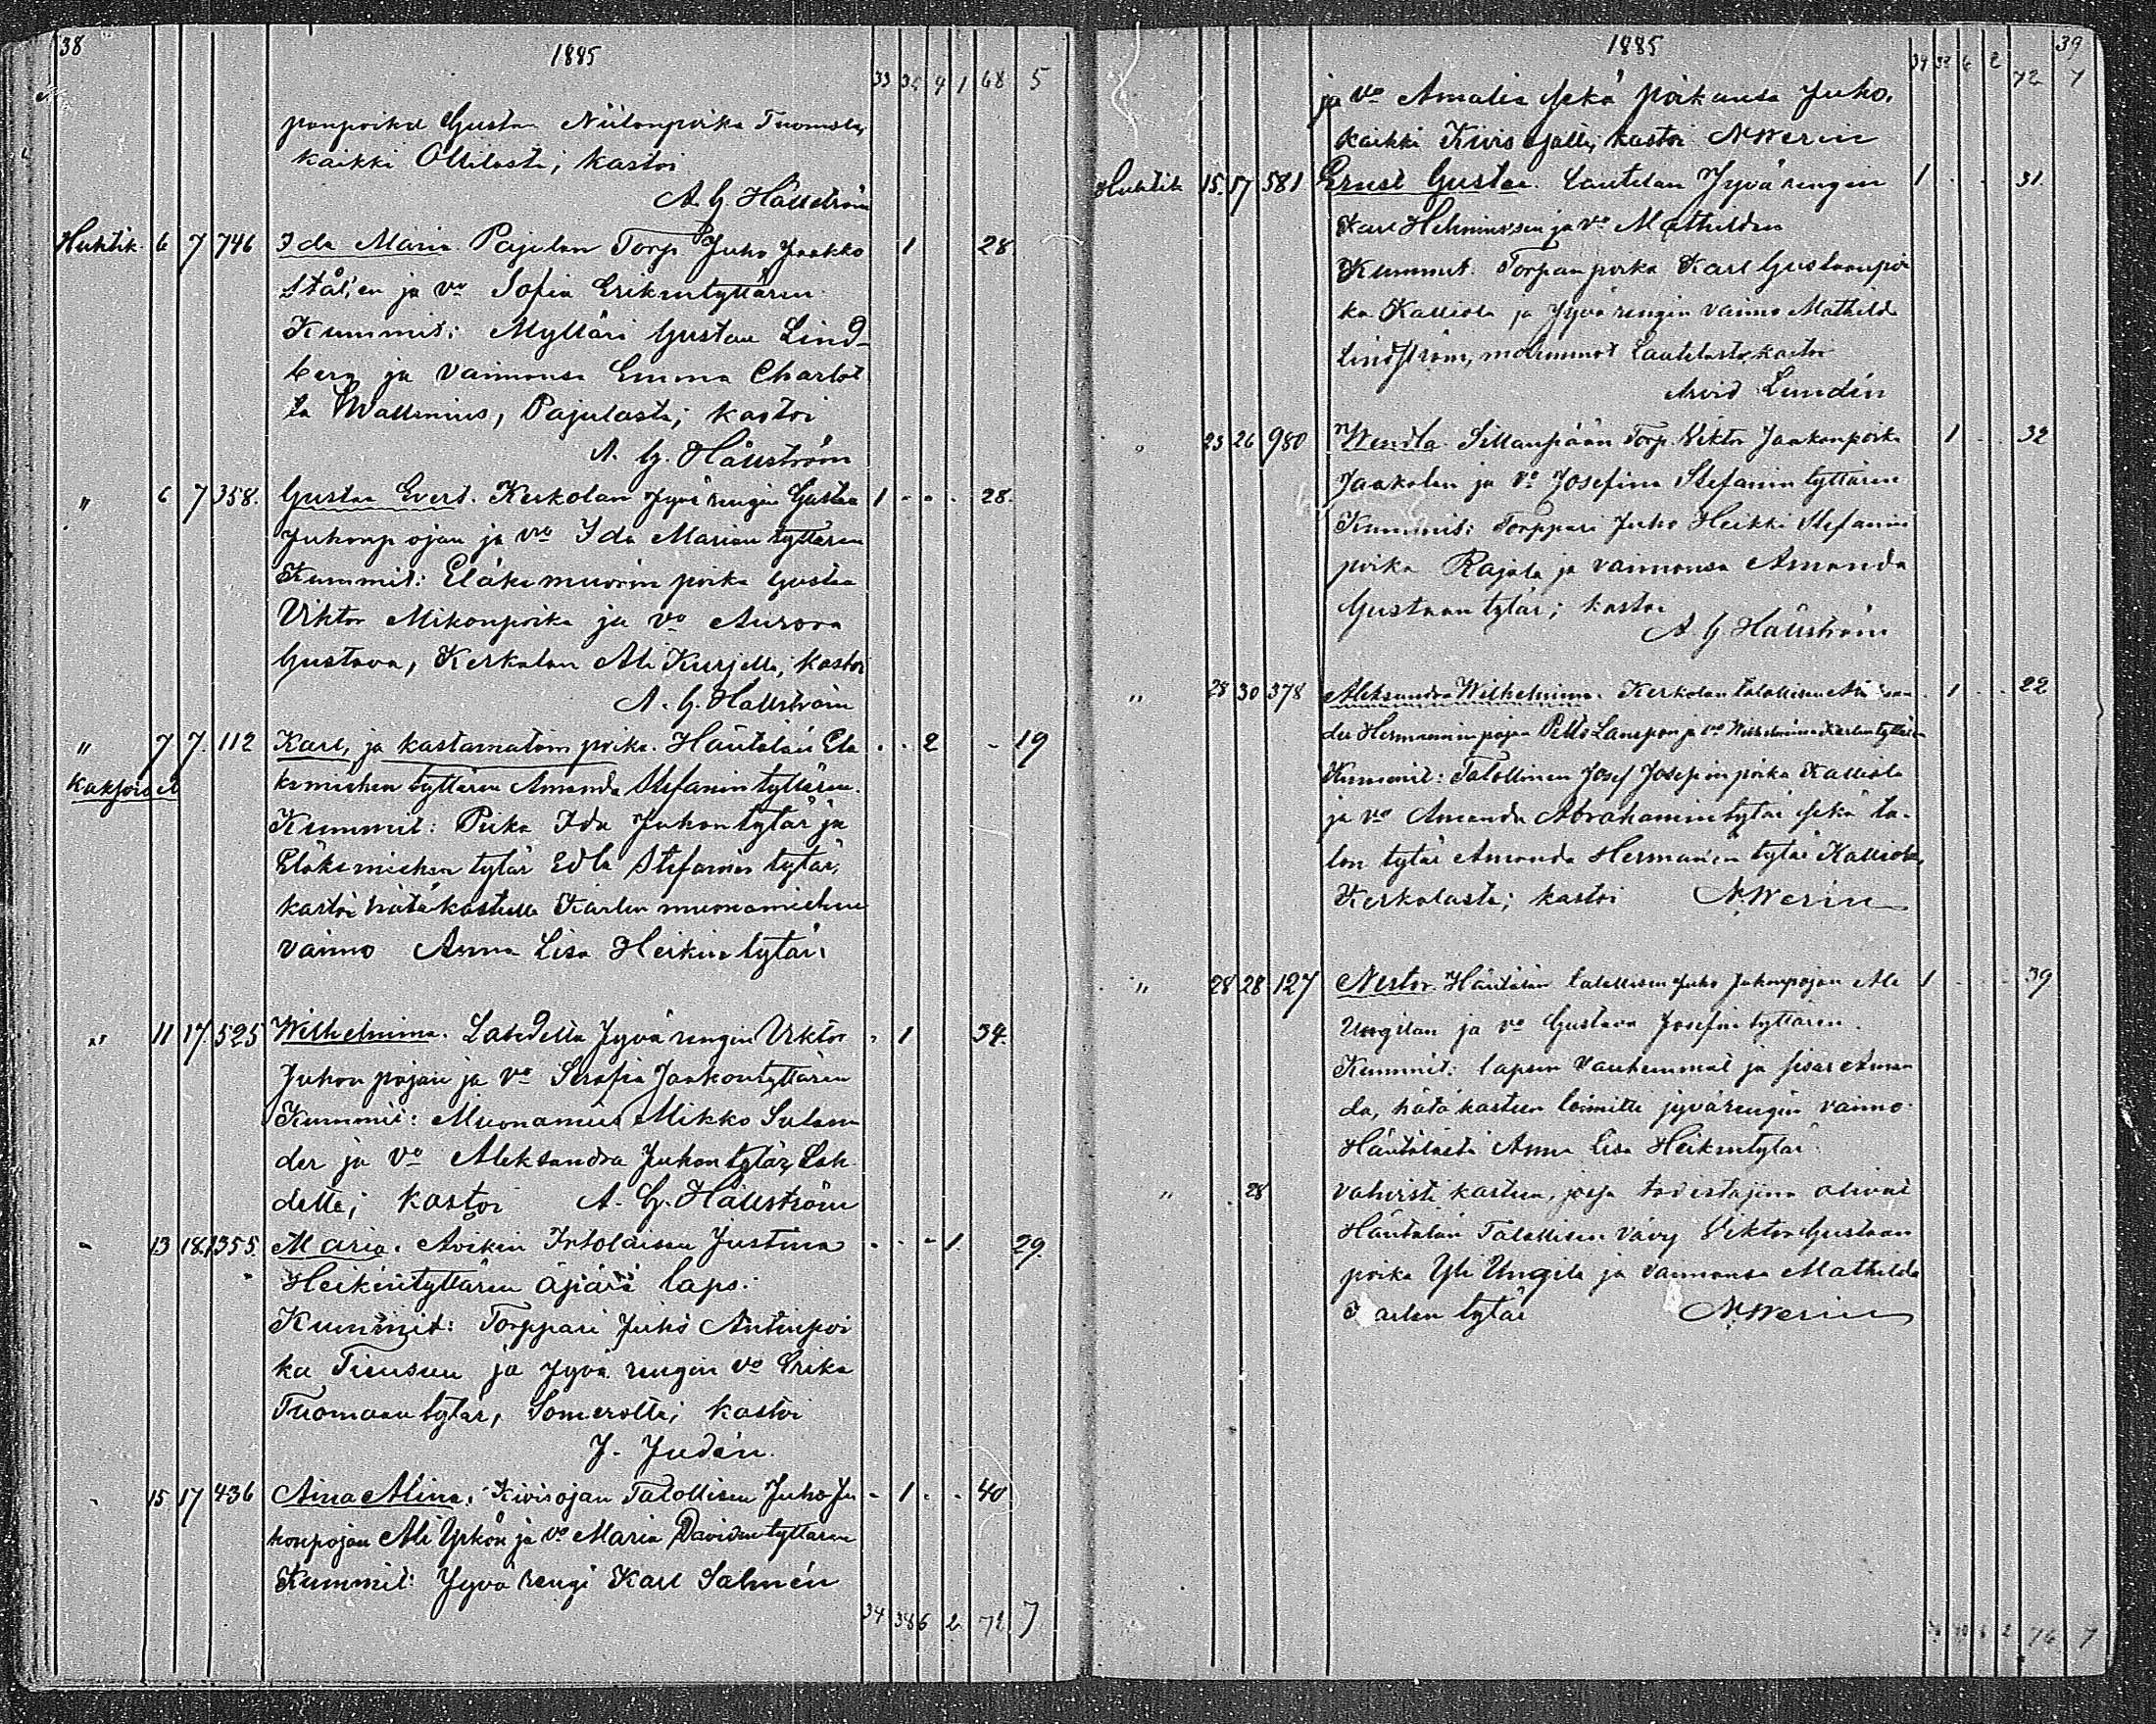 38
1885
33 35 4 1 68 5
panpoika Gustaa Niilonpoika Tuomola,
kaikki Ollilasta; kastoi
A. G. Hällström
Huhtik. 6 7 746 Ida Maria. Pajulan Torp. Juho Jaakko 1 28.
Stål'en ja vo Sofia Erikintyttären
Kummit: Mylläri Gustaa Lind-
berg ja vaimonsa Emma Charlot
ta Wallenius, Pajulasta; kastoi
A. G. Hällström
" 6 7 358. Gustaa Evert. Kerkolan Jyvärengin Gustaa 1 - - . 28.
Juhonpojan ja vo Ida Marian tyttären
Kummit: Eläkemuorin poika Gustaa
Viktor Mikonpoika ja vo Aurora
Gustava, Kerkolan Ali Kurjella; kastoi
A. G. Hällström
" 7 7. 112 Karl, ja kastamatoin poika. Häntälän Elä . . 2 - 19
Kaksoiset
kemiehen tyttären Amanda Stefanintyttären.
Kummit: Piika Ida Juhontytär ja
Eläkemiehen tytär Edla Stefanin tytär;
kastoi hätäkasteella Karlen muonamiehen
vaimo Anna Lisa Heikin tytär.
" 11 17. 525 Wilhelmina. Lahdella Jyvärengin Viktor . 1 34.
Juhonpojan ja vo Serafia Jaakontyttären
Kummit: Muonamies Mikko Sulan
der ja vo Aleksandra Juhontytär, Lah
delta; kastoi A. G. Hällström
- 13 18. 1355. Maria. Avikin Itsoläisen Justina - . - 1. 29.
Heikintyttären äpärä laps.
Kummit: Torppari Juho Antinpoi
ka ja Jyvä rengin vo Erika
Tuomaan tytär, Somerolta; kastoi
J. Judén.
- 15 17 436 Aina Alina. Kivisojan Talollisen Juho Ju - 1 . . 40
honpojan Ali Yrkön ja vo Maria Davidintyttären
Kummit: Jyvä rengi Karl Salmén
34 38 6 2 72 7
1885
39
34 38 6 2 72 7
ja vo Amalia sekä poikansa Juho,
kaikki Kivisojalta; kastoi N. Werin
Huhtik 15. 17 581 Ernst Gustaa. Lautelan Jyvä rengin 1 . . 31.
Karl Helenius'sen ja vo Mathildan
Kummit. Torpanpoika Karl Gustaanpoi
ka Kalliola ja Jyvä rengin vaimo Mathilda
Lindström, molemmat Lautelasta; kastoi
Arvid Lundén
" 23 26 980 Wendla. Sillanpään Torp. Viktor Jaakonpoika 1 . . 32
Jaakolan ja vo Josefina Stefanintyttären
Kummit: Torppari Juho Heikki Stefanin
poika Rajala ja vaimonsa Amanda
Gustaantytär; kastoi
A. G. Hällström
" 28 30 378 Aleksandra Wilhelmina. Kerkolan talollisen Aleksan . 1 . . 22
der Hermaninpojan ja vo Wilhelmina Karlentyttären
Kummit: Talollinen Josef Josefinpoika Kalliola
ja vo Amanda Abrahamintytär sekä ta-
lon tytär Amanda Hermanin tytär Kalliola,
Kerkolasta; kastoi N. Werin
" 28 28 127 Nestor. Häntälän talollisen Juho Juhonpojan Ali 1 . . 39
Ungilan ja vo Gustava Josefintyttären.
Kummit: lapsen vanhemmat ja sisar Aman
da, hätä kasteen toimitti jyvärengin vaimo
Häntälästä Anna Lisa Heikintytär.
" . 28 vahvisti kasteen, jossa todistajina olivat
Häntälän Talollisen vävy Viktor Gustaan
poika Yli Ungila ja vaimonsa Mathilda
Karlen tytär N. Werin
2 76 7